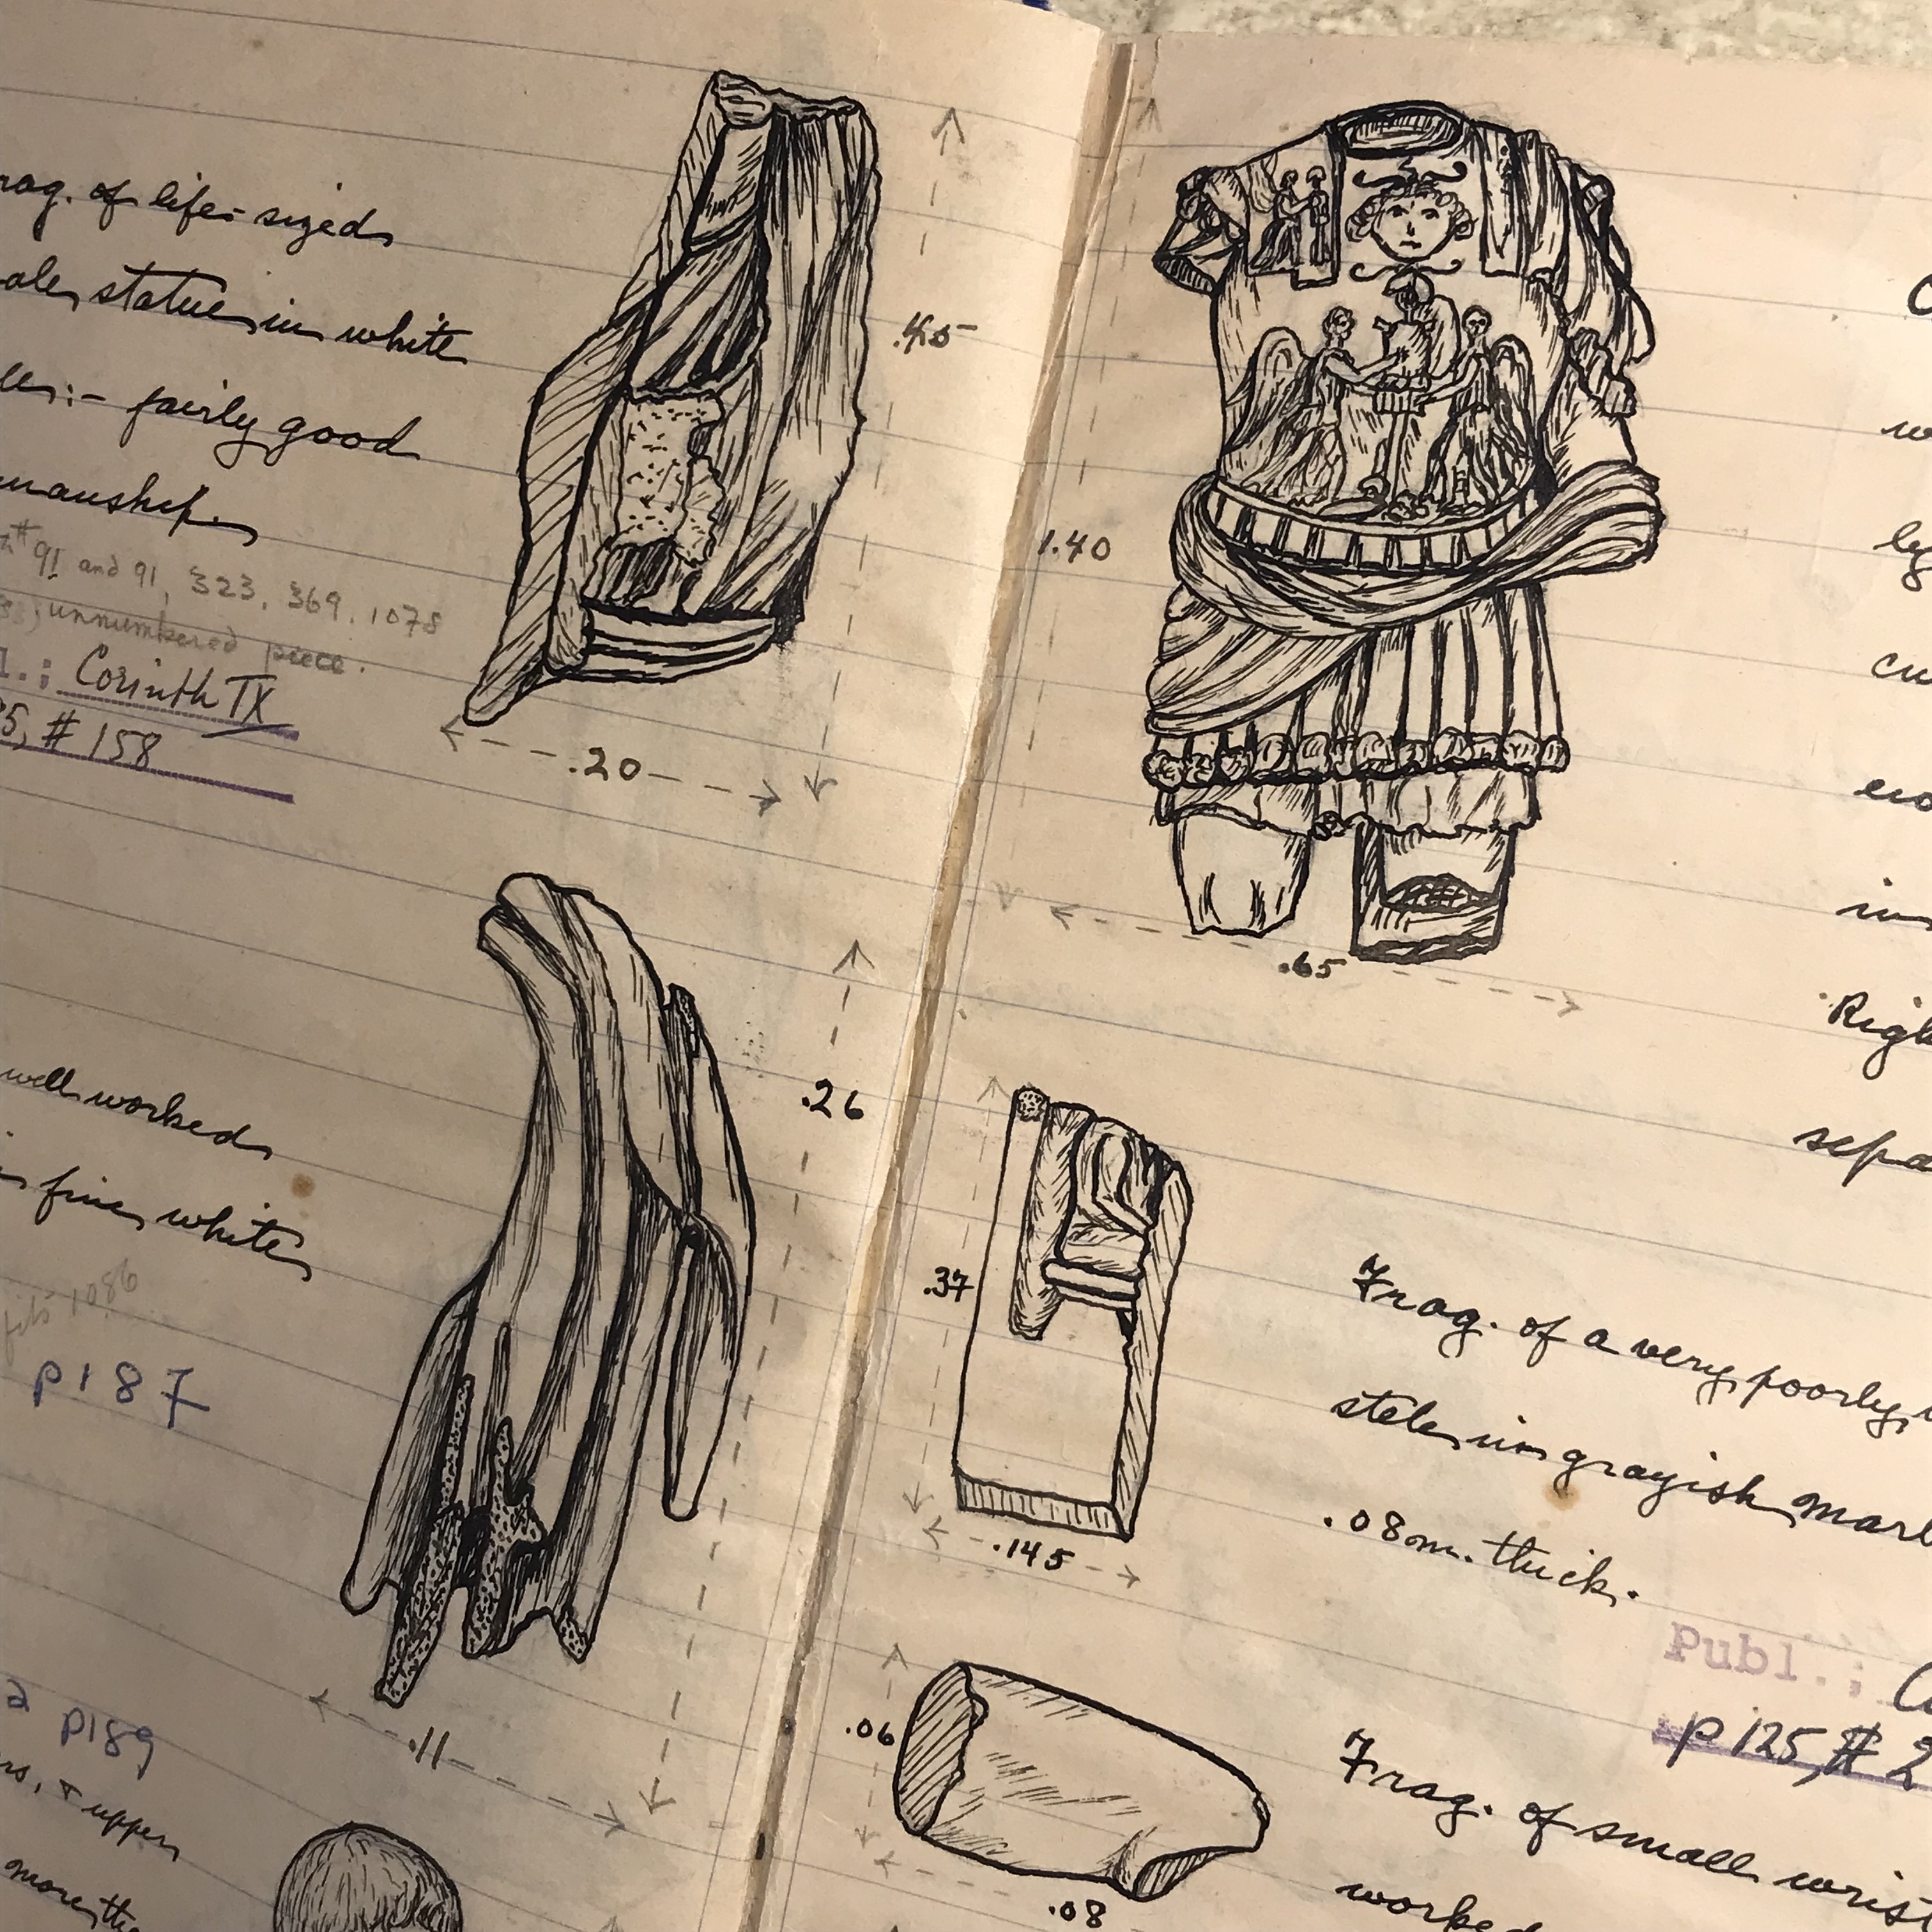 rag. of life-sized
ale statue in white
le:- fairly good
manship.
# 91 and 91, 323, 369, 1078
unnumbered piece.
l.: Corinth IX
5, # 158
.45
.20
well worked
fine white
fits 1086
p187
.26
.11
a p189
rs, & upper
more tha
1.40
.65
Righ
sepa
.37
.145
Frag. of a very poorly
stele in grayish marb
.08m. thick.
Publ.: C
p 125, # 2
.06
.08
Frag. of small wrist
worked